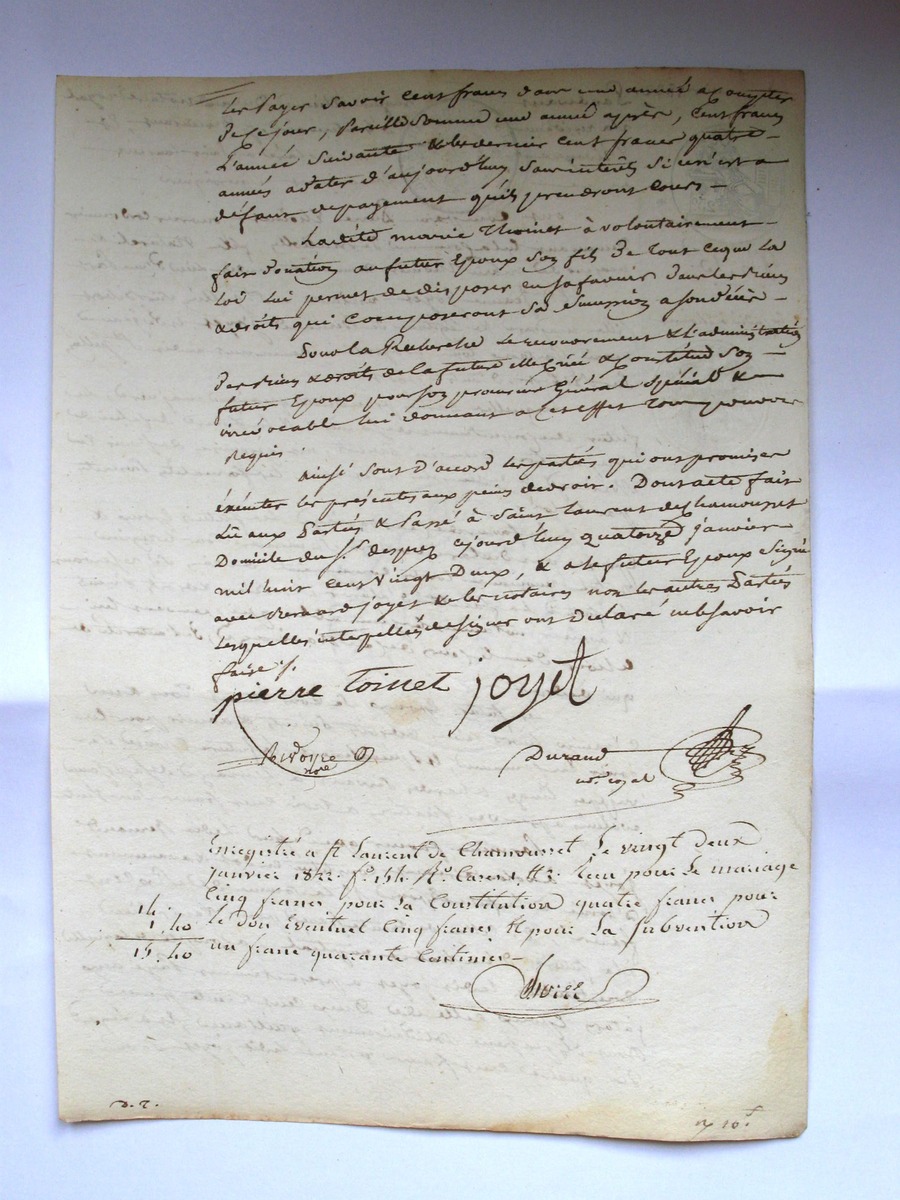 les payer savoir cent francs dans une année a compter
de ce jour, pareille somme une année après, cent francs
l'année suivante & les dernier cent francs quatre
années a dater d'aujourd'huy sans intérêts si ce n'est a
défaut de payement qu'ils prendront cours
Ladite marie Thoinet à volontairement
fait donation au futur Epoux Son fils De tout ce que La
Loi Lui permet de disposer en sa faveur dans les biens
& droits qui composeront Sa Succession a son décès
Pour la Recherche le recouvrement & l'administration
Des biens & droits de la future elle créé & constitue Son
futur Epoux pour son procureur Général Spécial &
irrévocable lui donnant a cet effet tous pouvoirs
Requis
Ainsi Sont D'accord les parties qui ont promis
exécuter les présentes aux peines de droit. Dont acte fait
Lu aux Parties & Passé à Saint Laurent de Chamousset
Domicile du Sr. cejourd'huy quatorze janvier
mil huit cent vingt Deux, & a le futur Epoux Signé
avec Bernard joyet & les notaires non les autres Parties
Lesquelles interpellées de signer ont Déclaré ne le Savoir
faire ./.
pierre toinet joyet
Durand
nre. royal
Enregistré a St Laurent de Chamousset Le vingt deux
janvier 1822 fo. 154 Ro. Cases 1 &3. Reçu pour Le mariage
Cinq francs pour La Constitution quatre francs pour
14. Le don Eventuel Cinq francs & pour La Subvention
1.40
15.40 un franc quarante Centimes